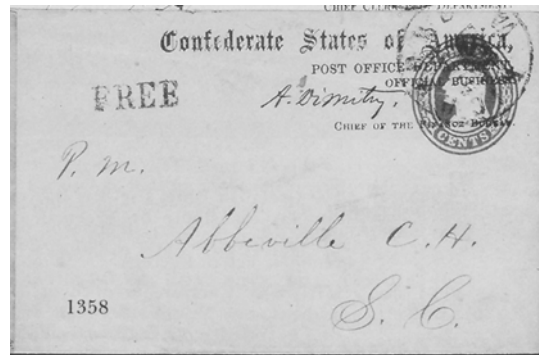 Confederate States of America,
POST OFFICE DEPARTMENT,
OFFICIAL BUSINESS
FREE
A. Dimitry,
CHIEF OF THE FINANCE BUREAU.
CENTS
P. M.
Abbeville C. H.
S. C.
1358